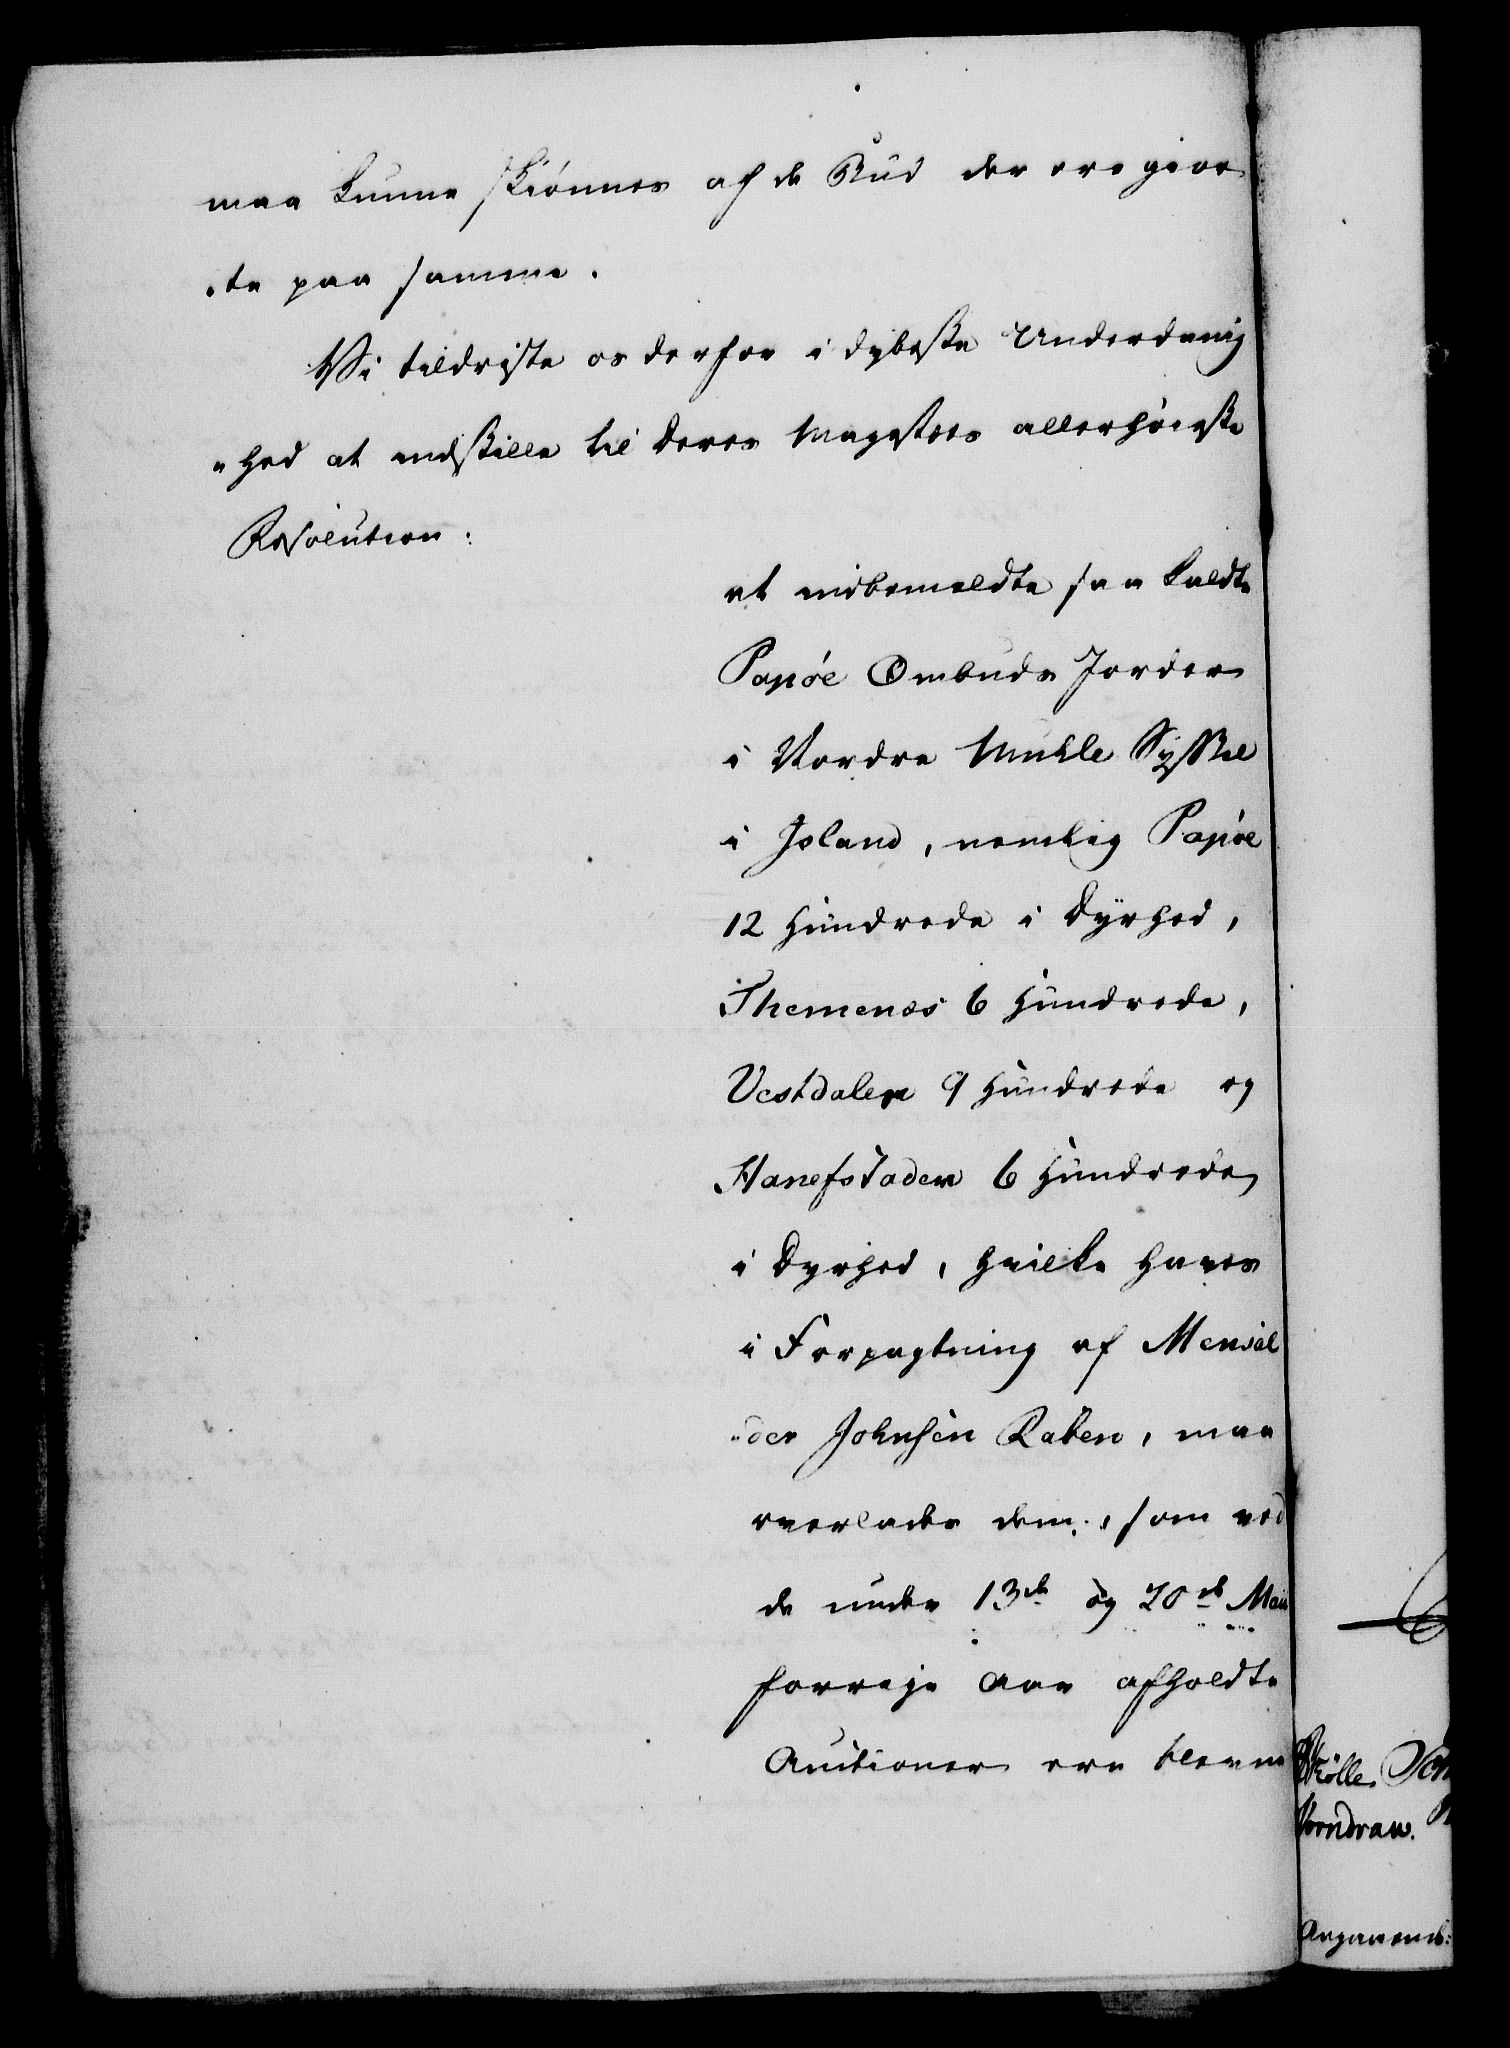 maa kunne skiønnes af de Bud der ere gior
-te paa samme.
Vi tildriste os derfor i dybeste Underdanig
-hed at indstille til Deres Majestæts allerhøieste
Resolution:
at indbemeldte saa kaldte
Papøe Ombuds Jorder
i Nordre Muhle Syssel
i Island, nemlig Papøe
12 Hundrede i Dyrhed,
Themenæs 6 Hundrede,
Vestdalen 9 Hundrede og
Hanefstaden 6 Hundrede
i Dyrhed, hvilke haves
i Forpagtning af Mensal
-der Johnsen Raben, maa
overlades dem, som ved
de under 13de og 20de Maii
forrige Aar afholdte
Auctioner ere bleven
Skølle.
Vorndran.